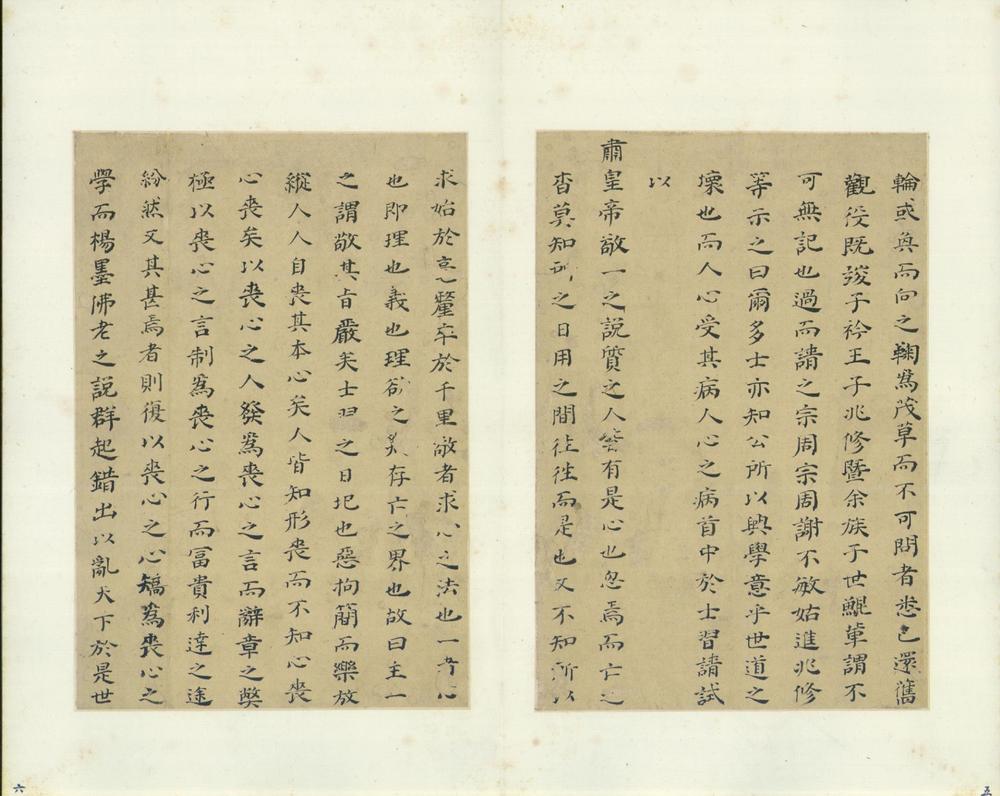 輪或奠而向之鞠爲茂草而不可問者悉已還舊
觀役既竣子衿王子兆修暨余族子世鯤輩謂不
可無記也過而請之宗周宗周謝不敏姑進兆修
等示之曰爾多士亦知公所以興學意乎世道之
壞也而人心受其病人心之病首中於士習請試
以
肅皇帝敬一之說質之人孰有是心也忽焉而亡之
杳莫知所之日用之間往往而是也又不知所以
求始於亳釐卒於千里敬者求心之法也一者心
也即理也義也理欲之幾存亡之界也故曰主一
之謂敬其旨嚴矣士習之日圮也惡拘簡而樂放
縱人人自喪其本心矣人皆知形喪而不知心喪
心喪矣以喪心之人發爲喪心之言而辭章之獘
極以喪心之言制爲喪心之行而冨貴利達之途
紛然又其甚焉者則復以喪心之心矯爲喪心之
學而楊墨佛老之説群起錯出以亂天下於是世
五
六